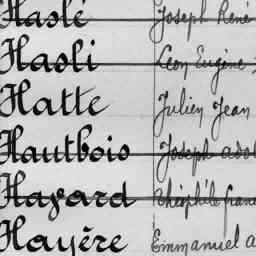 Haslé Joseph René
Hasli Léon Eugène
Hatte Julien Jean
Hautbois Joseph adol
Havard Théophile franc
Hayère Emmanuel a